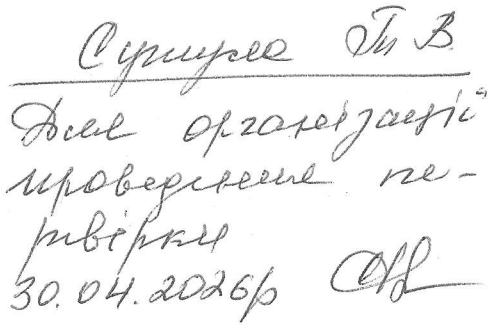 Т. В.
Для організації
проведення пе-
ревірки
30.04.2026р